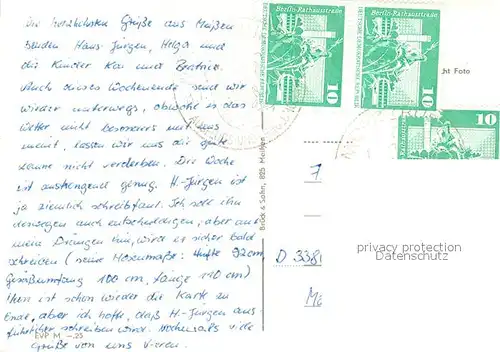 Die herzlichsten Grüße aus Meißen
senden Hans-Jürgen, Helga und
die Kinder Kai und Beatrice.
Auch dieses Wochenende sind wir
wieder unterwegs, obwohl es das
Wetter nicht besonders gut mit uns
meint, lassen wir uns die gute
Laune nicht verderben. Die Woche
ist anstrengend genug. H.-Jürgen ist
ja ziemlich schreibfaul. Ich soll ihn
deswegen auch entschuldigen, aber auf
mein Drängen hin, wird er sicher bald
schreiben (seine Hosenmaße: Hüfte 92cm
Gesäßumfang 100 cm, Länge 110 cm)
Nun ist schon wieder die Karte zu
Ende, aber ich hoffe, daß H-Jürgen aus-
führlicher schreiben wird. Nochmals viele
Grüße von uns Vieren.
EVP M —,25
Brück & Sohn, 825 Meißen
Berlin-Rathausstraße
DEUTSCHE DEMOKRATISCHE REPUBLIK
10
Berlin-Rathausstraße
DEUTSCHE DEMOKRATISCHE REPUBLIK
10
10
ht Foto
D 3381
privacy protection
Datenschutz